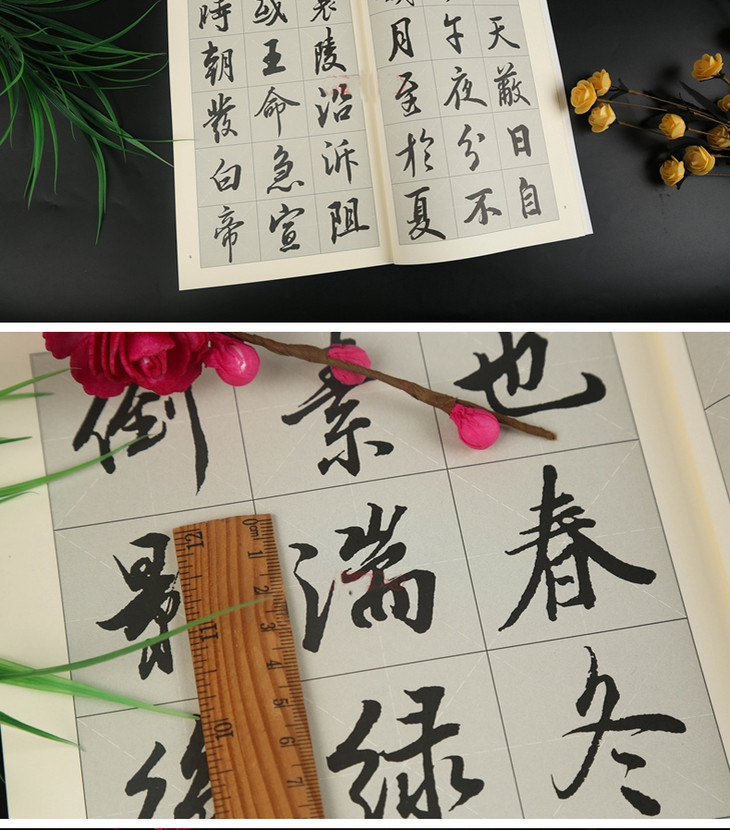 天蔽日自
午夜分不
月至於夏
襄陵沿泝阻
或王命急宣
時朝發白帝
也春冬
素湍緑
倒影
0cm 1 2 3 4 5 6 7
12 11 10